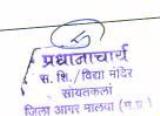 प्रधानाचार्य
स. शि./ विद्या मंदिर
सोयतकलां
जिला आगर मालवा (म.प्र.)